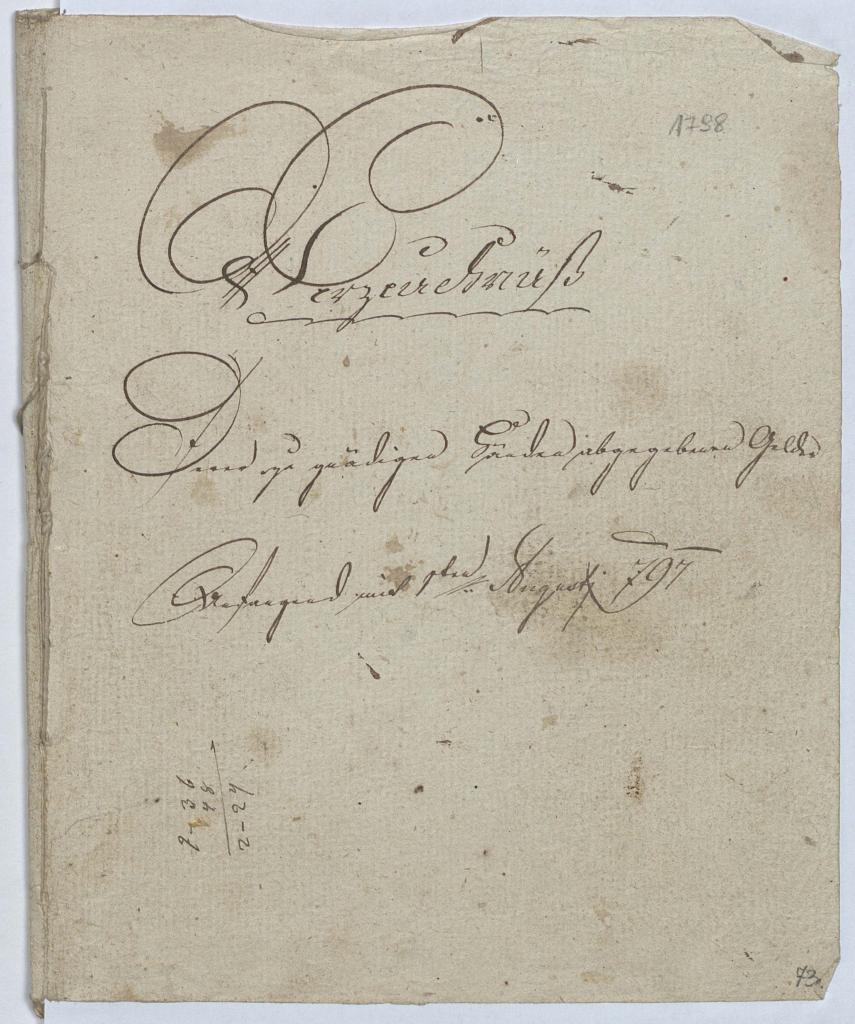 1798
Verzeichnüß
Derer zu gnädigen Händen abgegebenen Gelder
Anfangend mit 1sten August 797
73.